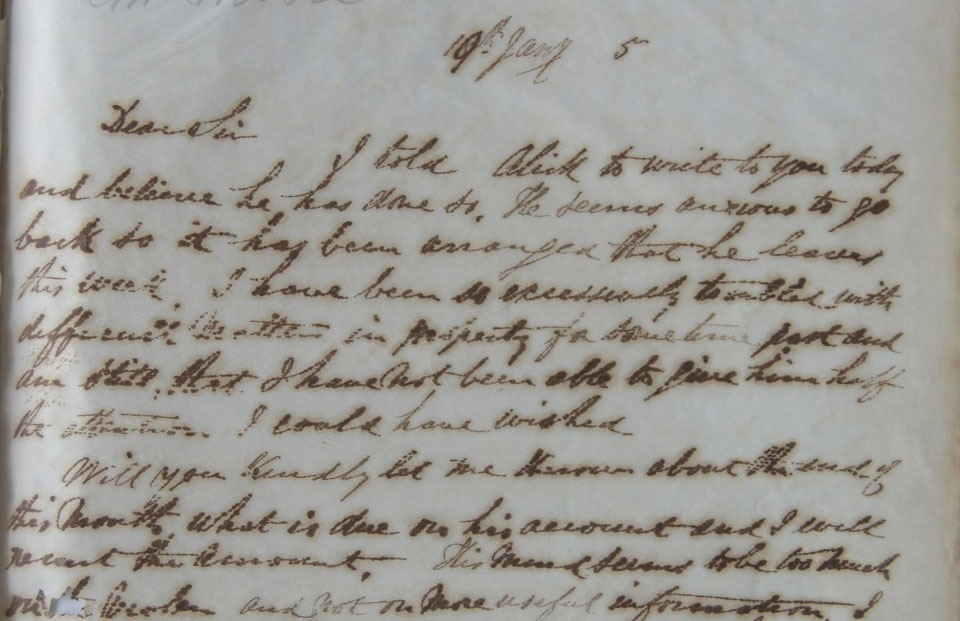 19th Jany 5
Dear Sir
I told Alick to write to you today
and believe he has done so. He seems anxious to go
back so it has been arranged that he leaves
this week. I have been so excessively troubled with
different matters in property for some time past and
am still, that I have not been able to give him half
the attention I could have wished.
Will you kindly let me know about the end of
this Month, what is due on his account and I will
remit the amount. His mind seems to be too much
on the and not on more useful information, I